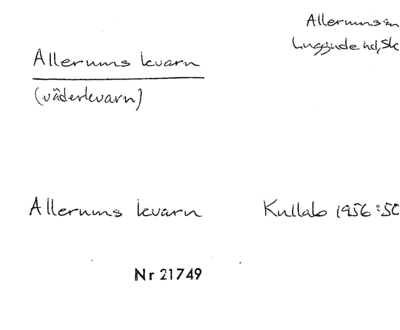 Allerums sn
Luggude hd, Sk
Allerums kvarn
(väderkvarn)
Allerums kvarn Kullabo 1956:50
Nr 21749